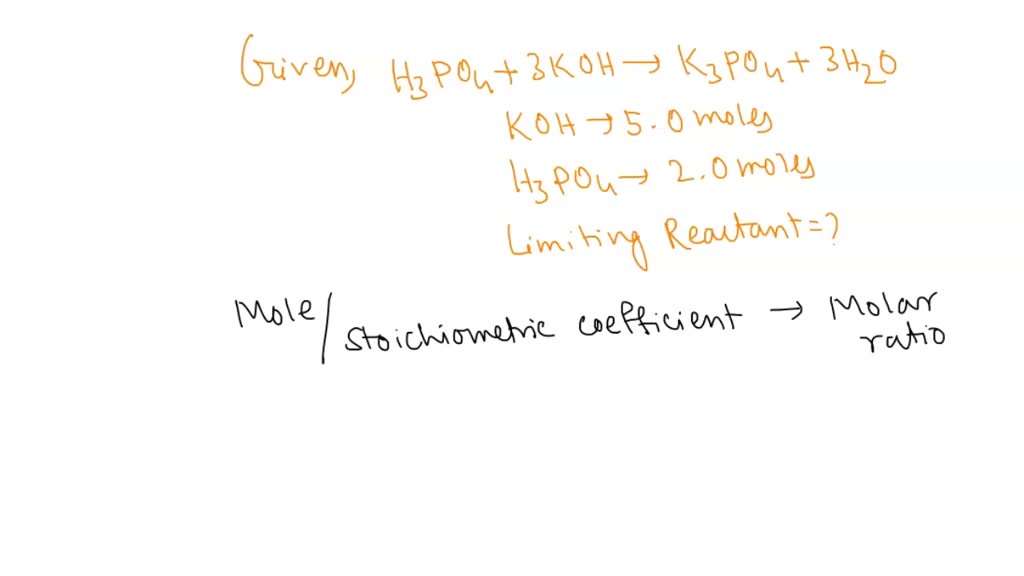 Given, H₃PO₄ + 3KOH → K₃PO₄ + 3H₂O
KOH → 5.0 moles
H₃PO₄ → 2.0 moles
Limiting Reactant = ?
Mole / stoichiometric coefficient → Molar
ratio